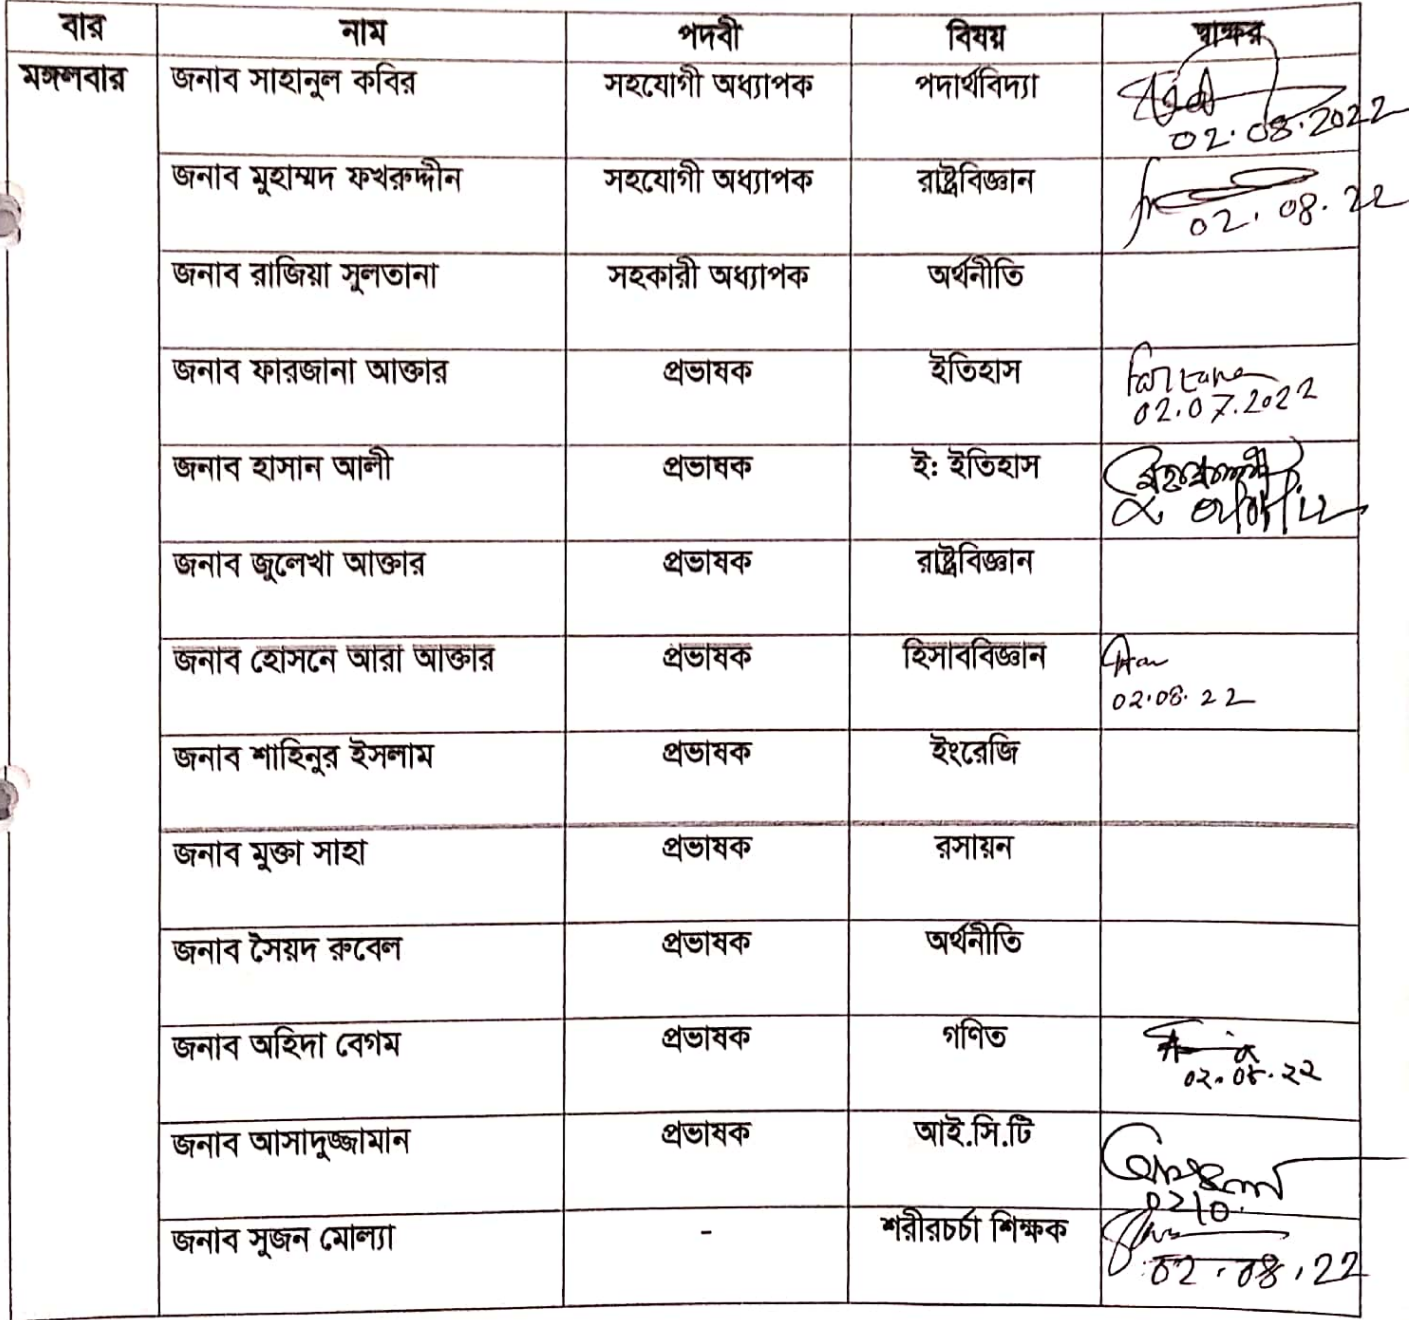 বার নাম পদবী বিষয় স্বাক্ষর
মঙ্গলবার জনাব সাহানুল কবির সহযোগী অধ্যাপক পদার্থবিদ্যা
02.08.2022
জনাব মুহাম্মদ ফখরুদ্দীন সহযোগী অধ্যাপক রাষ্ট্রবিজ্ঞান
02.08.22
জনাব রাজিয়া সুলতানা সহকারী অধ্যাপক অর্থনীতি
জনাব ফারজানা আক্তার প্রভাষক ইতিহাস
02.07.2022
জনাব হাসান আলী প্রভাষক ই: ইতিহাস
জনাব জুলেখা আক্তার প্রভাষক রাষ্ট্রবিজ্ঞান
জনাব হোসনে আরা আক্তার প্রভাষক হিসাববিজ্ঞান
02.08.22
জনাব শাহিনুর ইসলাম প্রভাষক ইংরেজি
জনাব মুক্তা সাহা প্রভাষক রসায়ন
জনাব সৈয়দ রুবেল প্রভাষক অর্থনীতি
জনাব অহিদা বেগম প্রভাষক গণিত
০২.০৮.২২
জনাব আসাদুজ্জামান প্রভাষক আই.সি.টি
জনাব সুজন মোল্যা - শরীরচর্চা শিক্ষক
02.08.22